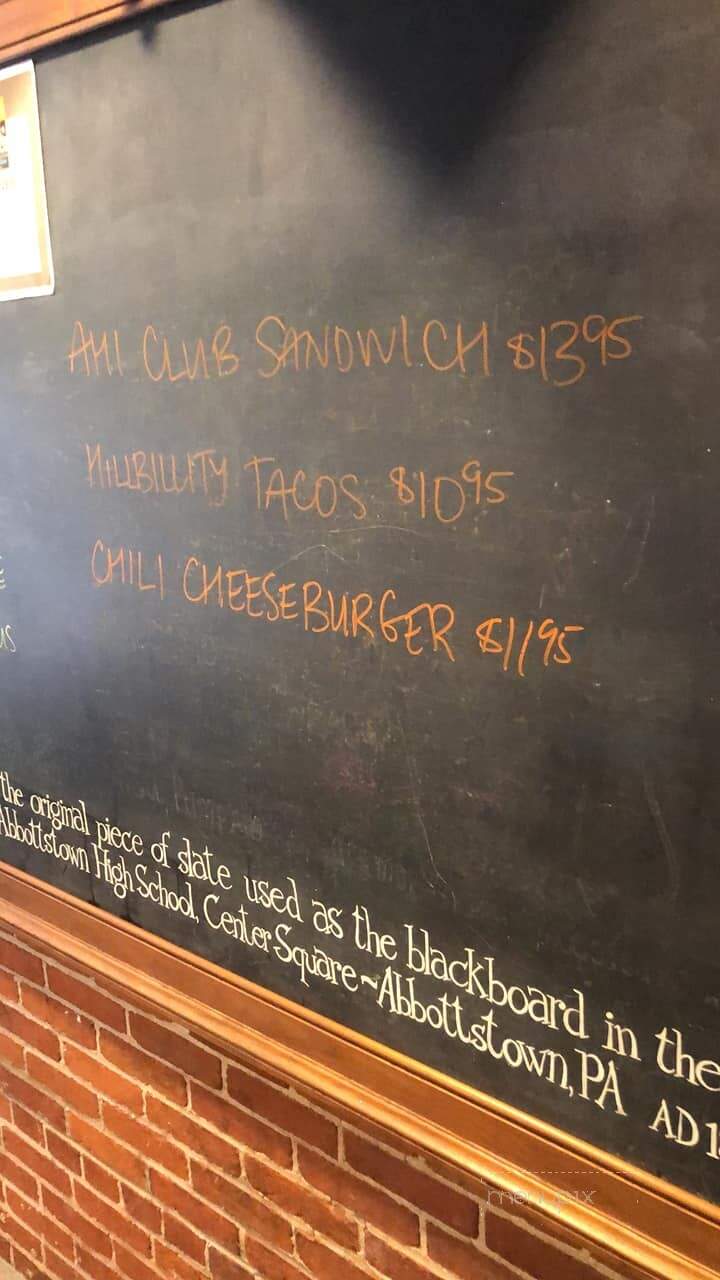 AHI CLUB SANDWICH $13⁹⁵
HILLBILLITY TACOS $10⁹⁵
CHILI CHEESEBURGER $11⁹⁵
the original piece of slate used as the blackboard in the
Abbottstown High School, Center Square ~ Abbottstown, PA AD 1
menupix